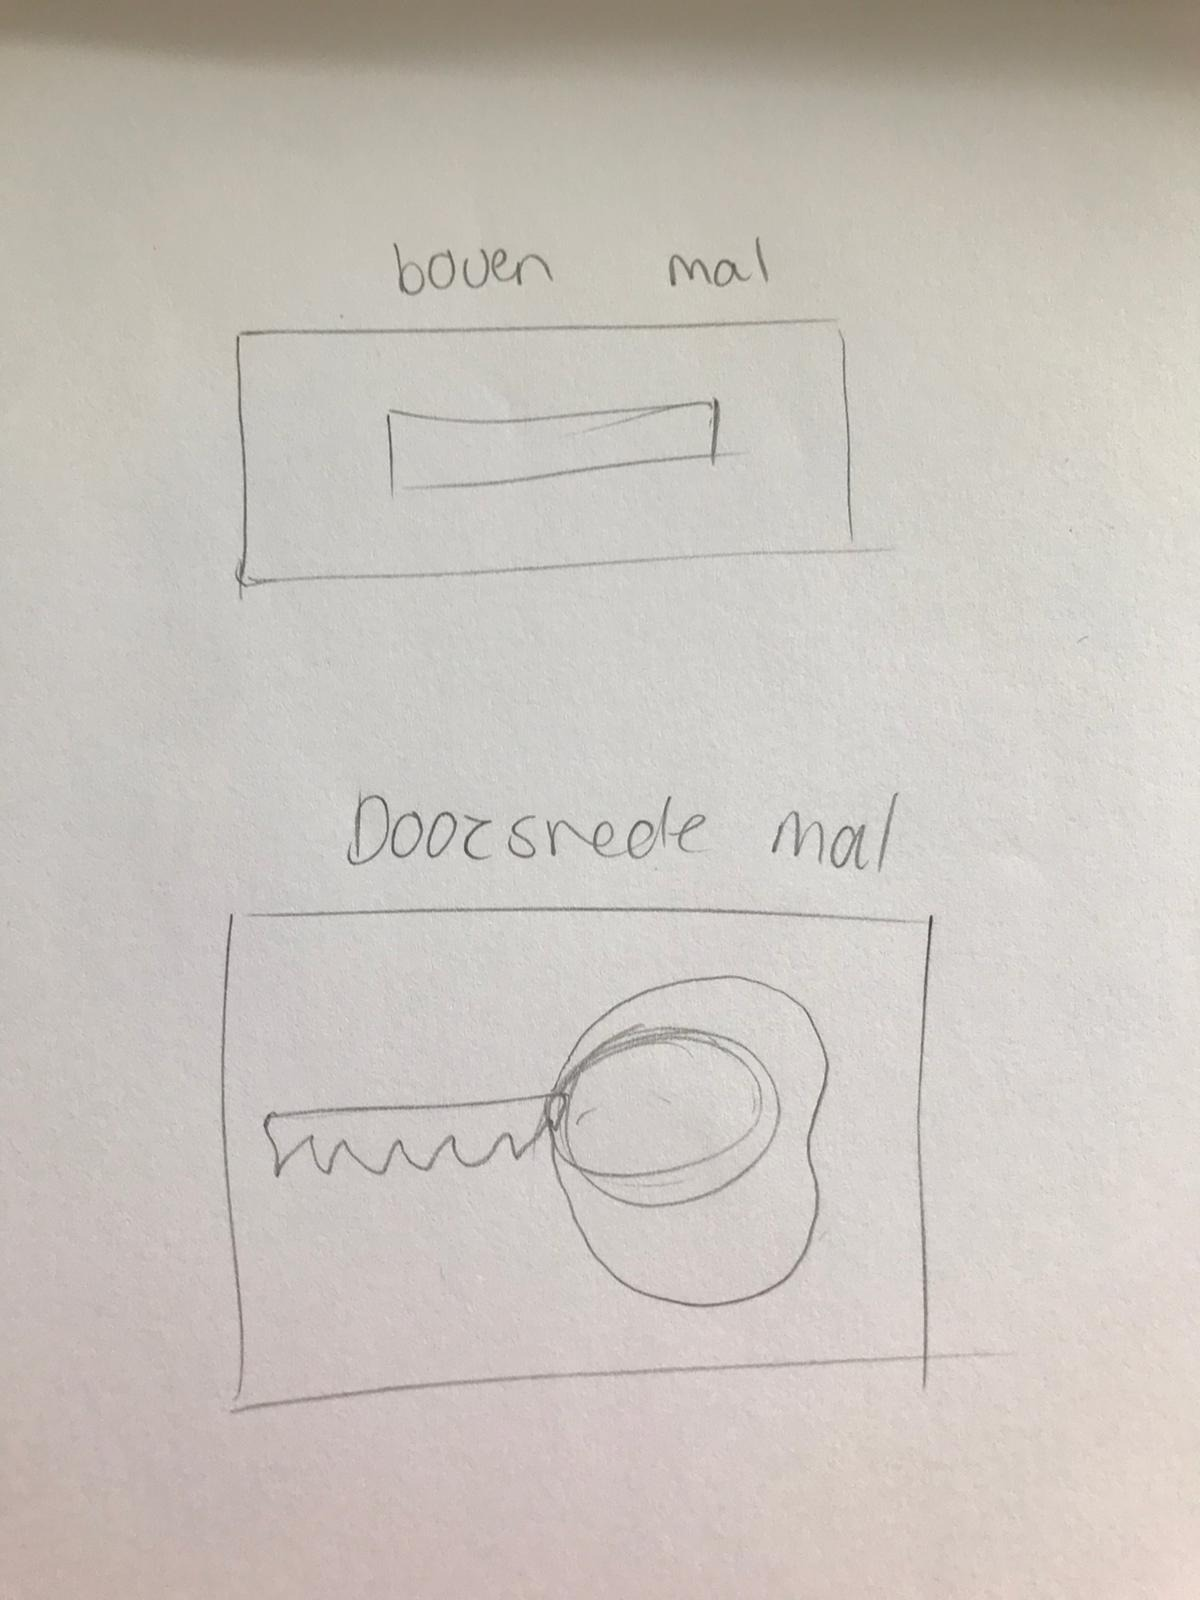 boven mal
Doorsnede mal